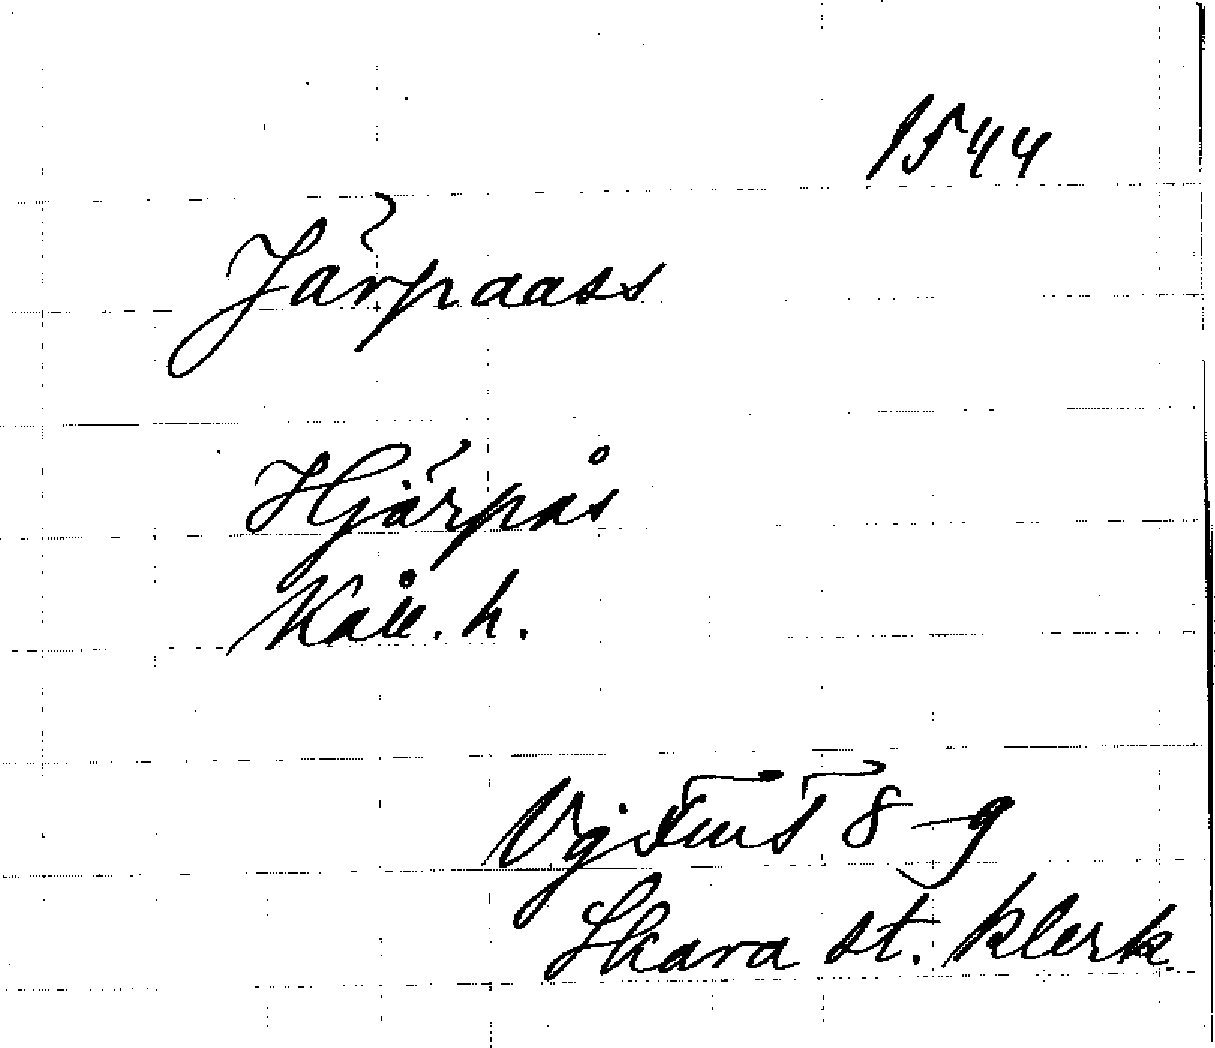 1544
Järpaass
Hjärpås
Kåll. h.
Vg 8-9
Skara st. klerk.